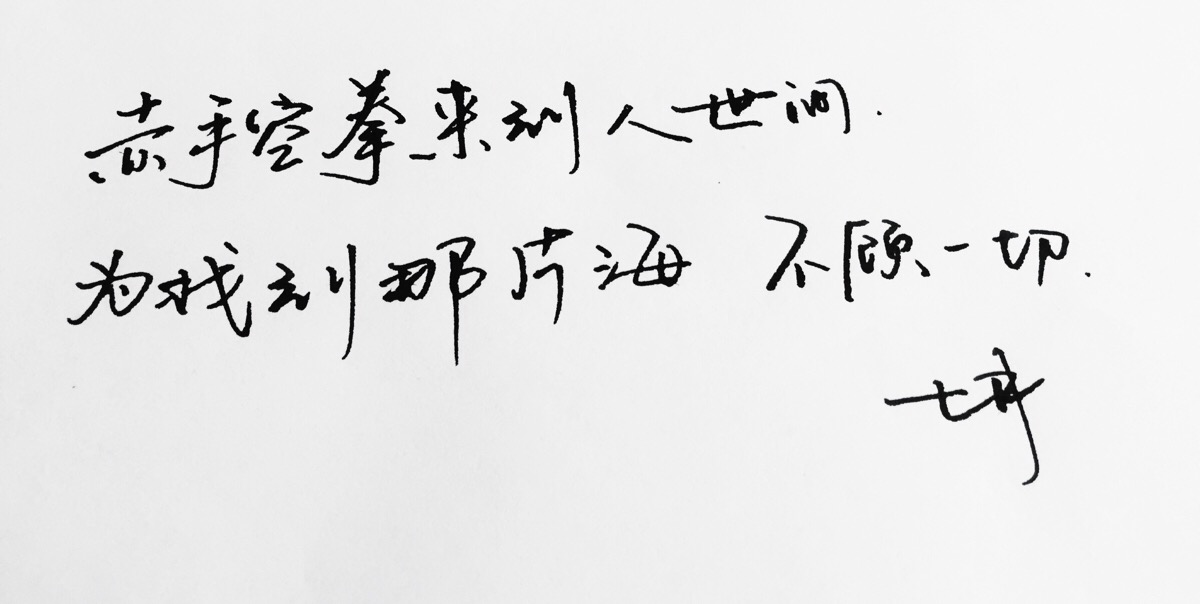 赤手空拳来到人世间.
为找到那片海 不顾一切.